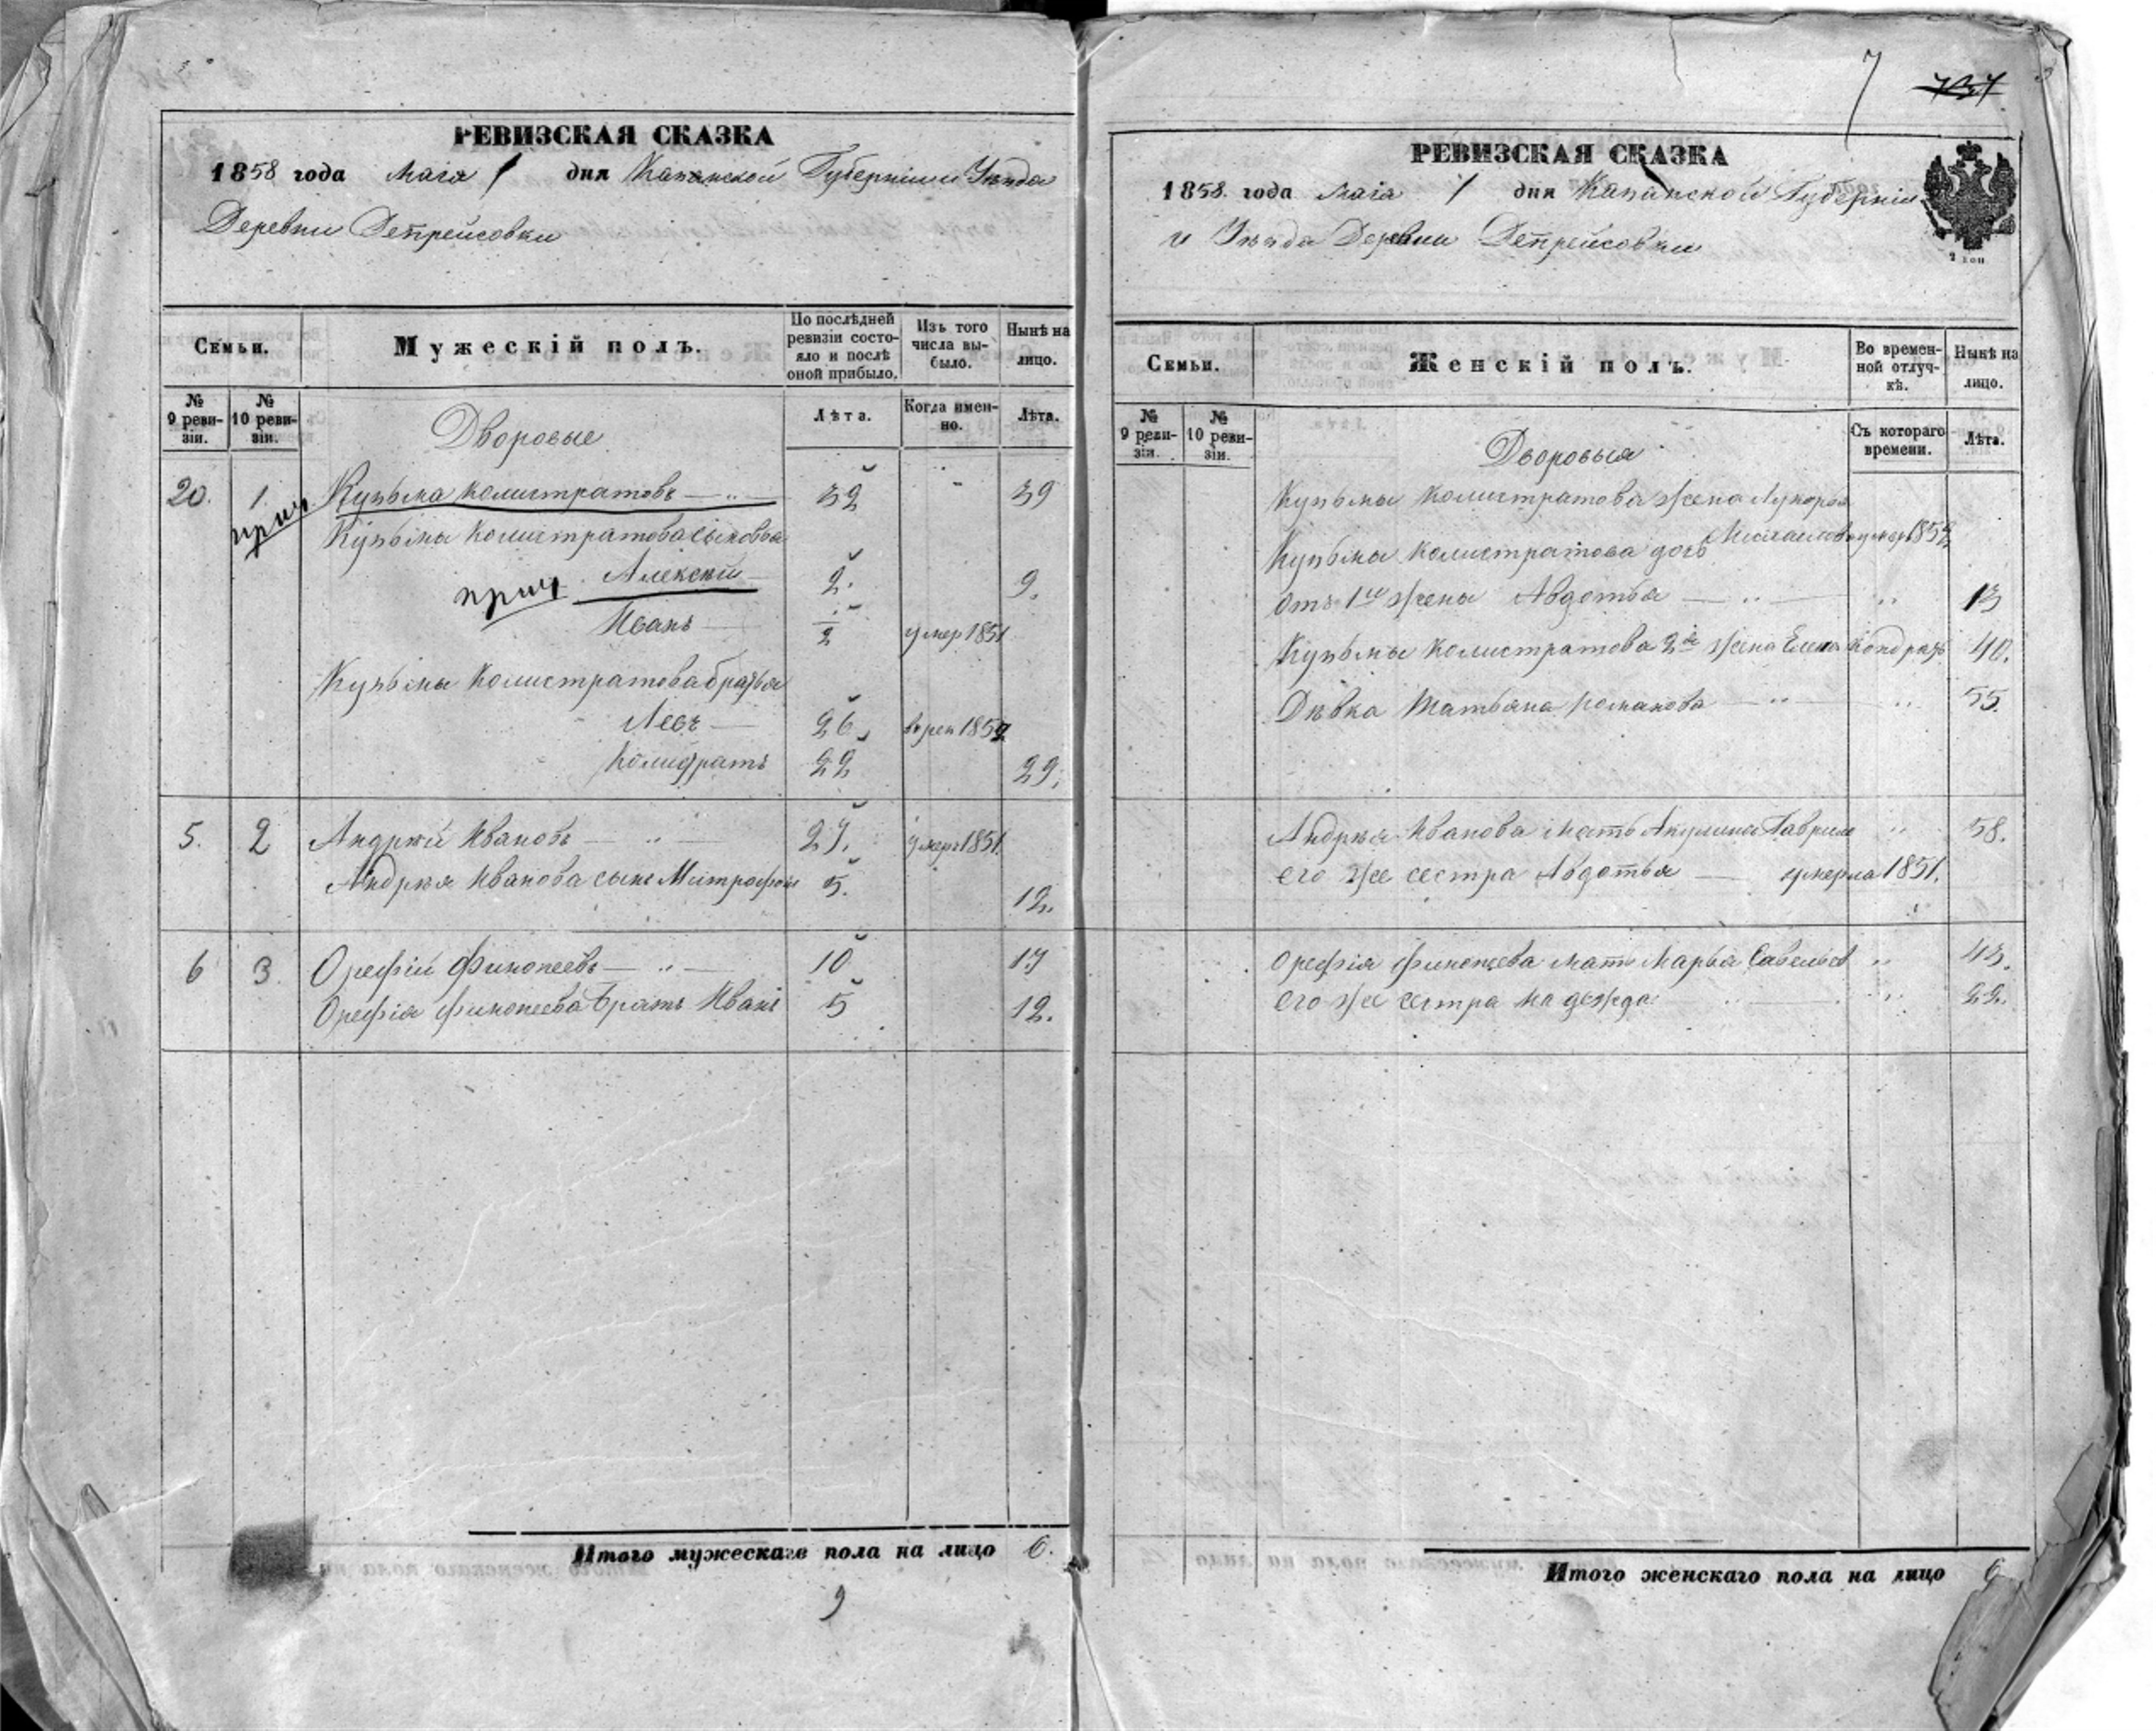 РЕВИЗСКАЯ СКАЗКА
1858 года Маія 1 дня Казанской Губерніи и Уѣзда
Деревни Депрейсовки
Семьи.
Мужескій полъ.
По послѣдней ревизіи состояло и послѣ оной прибыло.
Изъ того числа выбыло.
Нынѣ на лицо.
№ 9 ревизіи.
№ 10 ревизіи.
Дворовые
Лѣта.
Когда именно.
Лѣта.
20. 1. Кузьма Колистратовъ — „ — 32 „ 39
прич.
Кузьмы Колистратова сыновья
прич Алексѣй — 2. 9.
Иванъ — 2 умер 1851
Кузьмы Колистратова братья
Левъ — 26 в рек 1852
Колистратъ 22 29.
5. 2 Андрей Ивановъ — „ — 27. умеръ 1851.
Андрея Иванова сынъ Митрофанъ 5. 12.
6 3. Орефій Финопеевъ — „ — 10 17
Орефія Финопеева братъ Иванъ 5 12.
Итого мужескаго пола на лицо 6.
9
7
РЕВИЗСКАЯ СКАЗКА
1858. года Маія 1 дня Казанской Губерніи
и Уѣзда Деревни Депрейсовки
2 коп
Семьи.
Женскій полъ.
Во временной отлучкѣ.
Нынѣ на лицо.
№ 9 ревизіи.
№ 10 ревизіи.
Дворовыя
Съ котораго времени.
Лѣта.
Кузьмы Колистратова жена Лукерья
Кузьмы Колистратова дочь
отъ 1й жены Авдотья — „ — „ 13
Кузьмы Колистратова 2я жена Елена Кондрат 40.
Дѣвка Татьяна Романова — „ — „ 55.
Андрея Иванова мать Акулина Гаврило „ 58.
его же сестра Авдотья — умерла 1851.
Орефія Финопеева мать Марья Савельев „ 43.
его же сестра Надежда „ — „ 22.
Итого женскаго пола на лицо 6